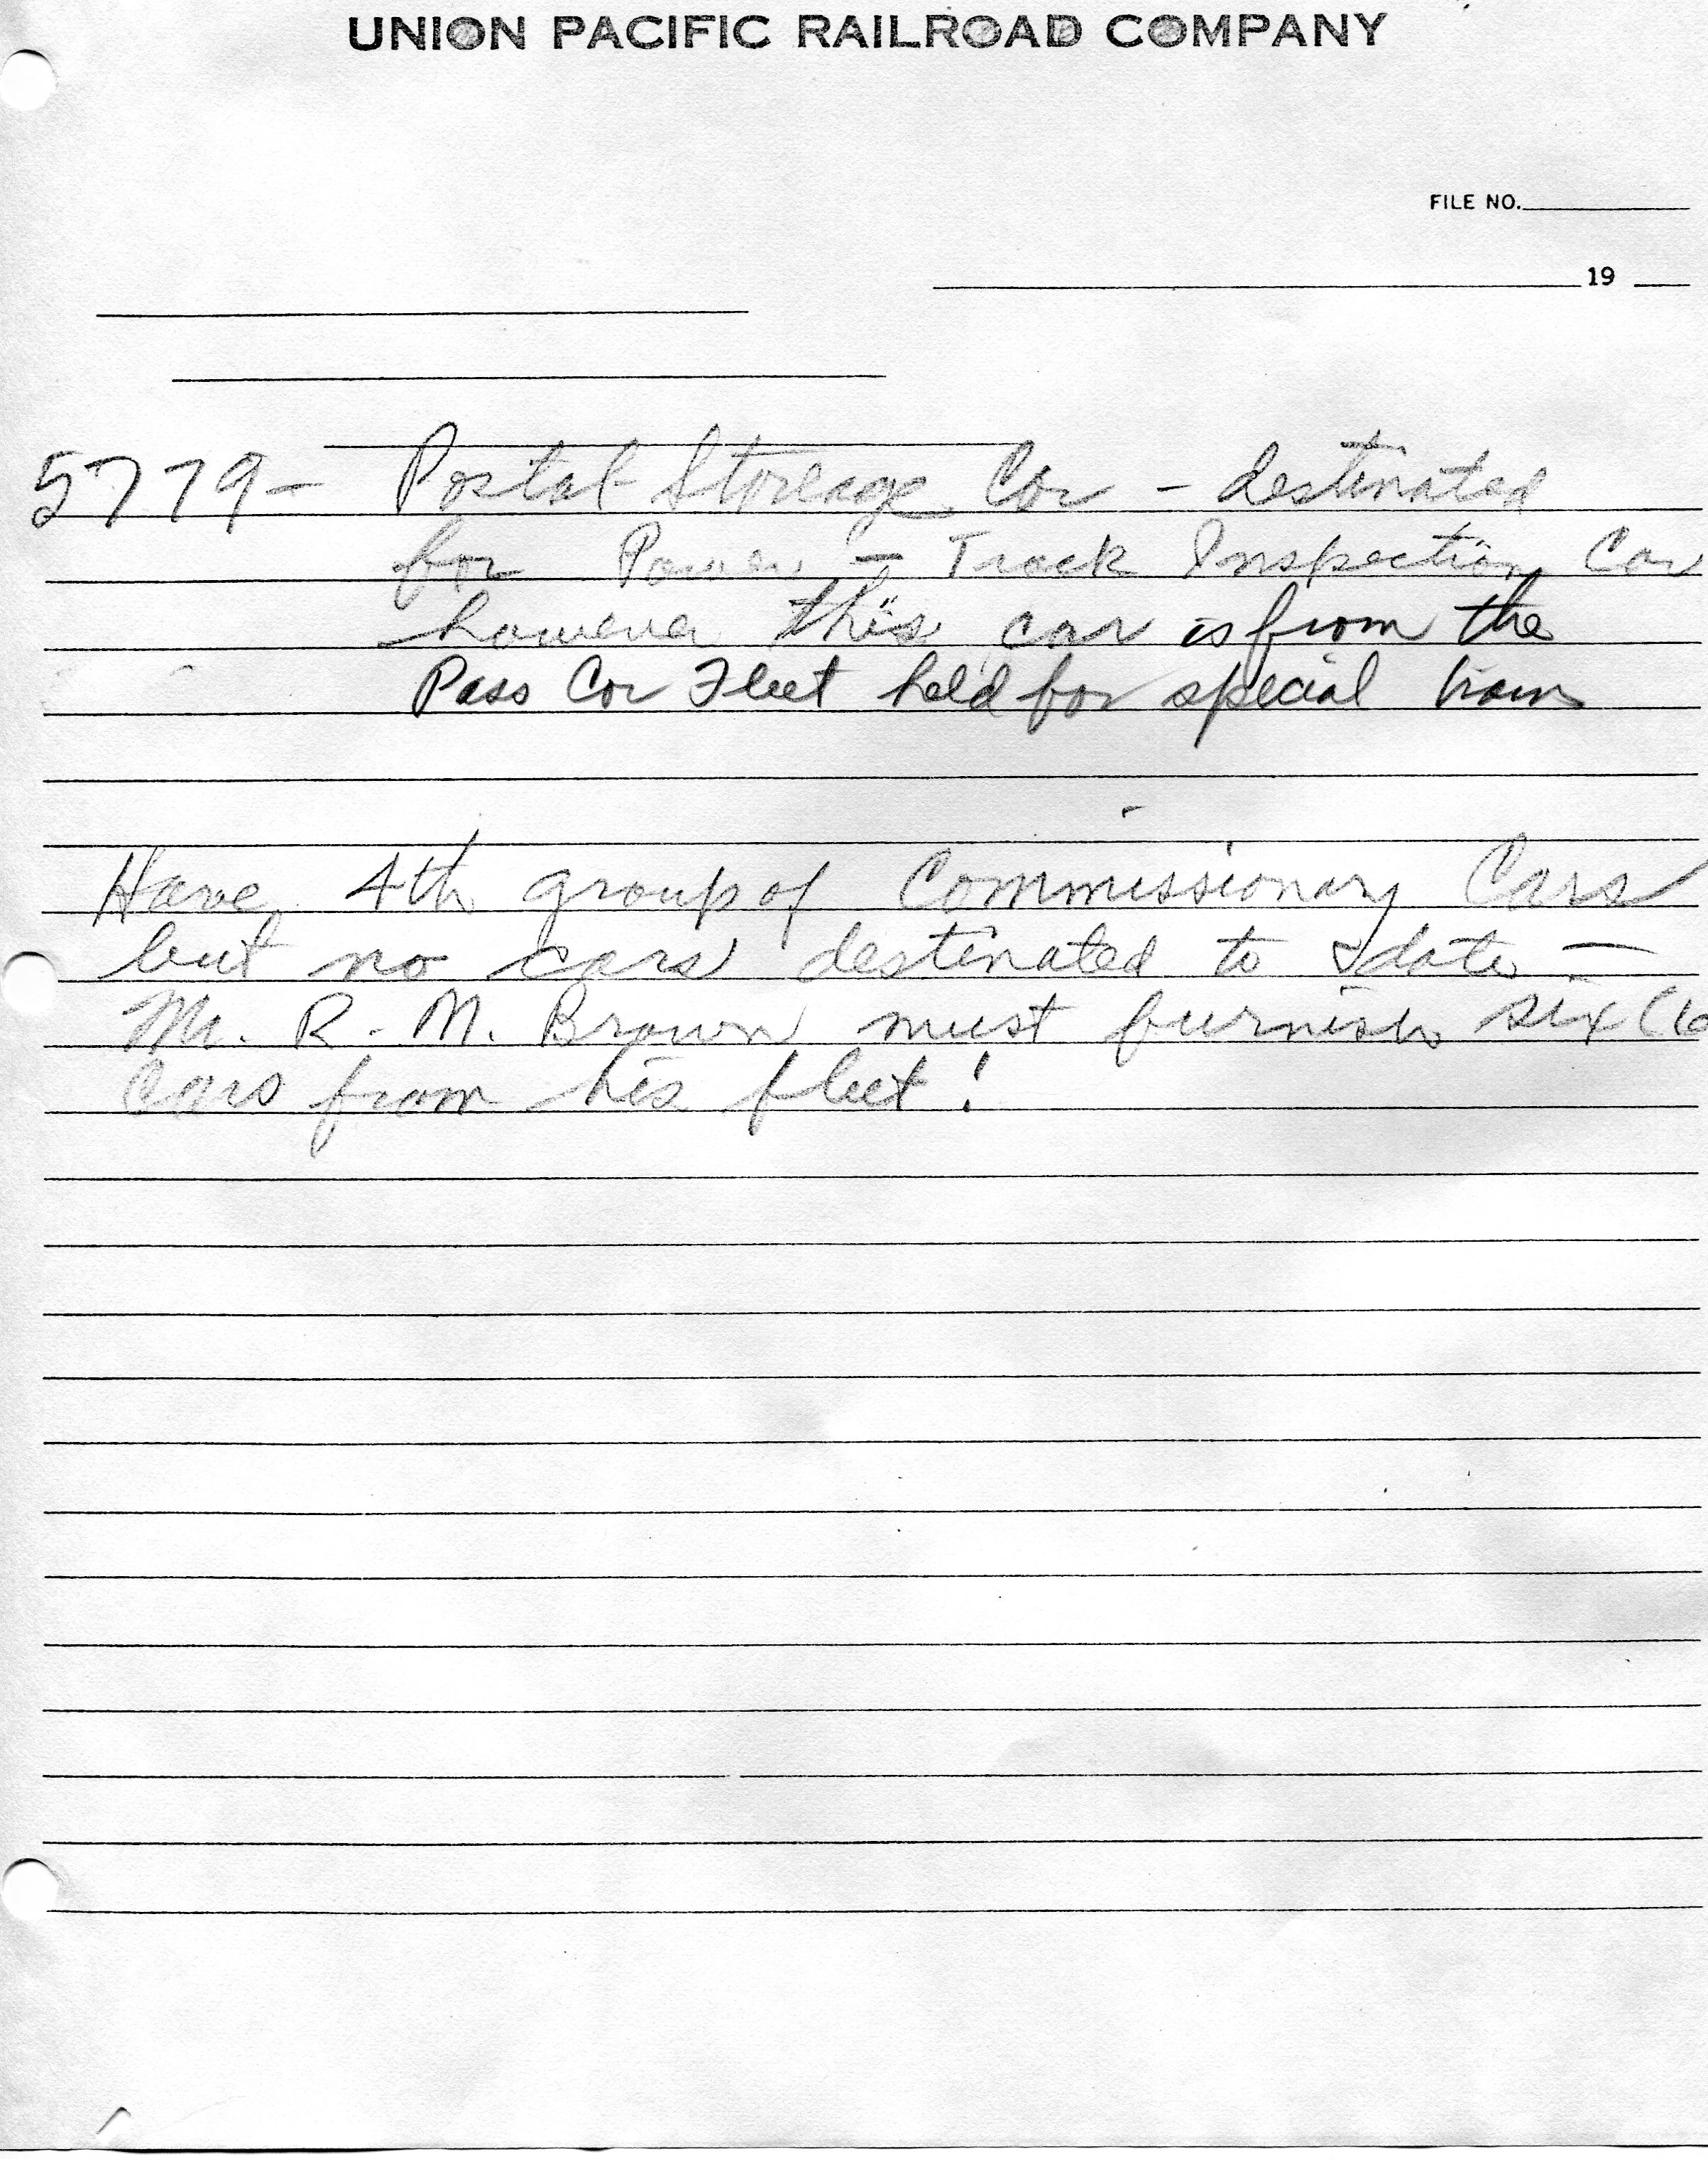 UNION PACIFIC RAILROAD COMPANY
FILE NO.
19
5779- Postal Storeage Car - destinated
for Power - Track Inspection Car
however this car is from the
Pass Car Fleet held for special trains
Have 4th group of Commissionary Cars
but no cars destinated to date -
Mr. R. M. Brown must furnish six (6
Cars from his fleet!